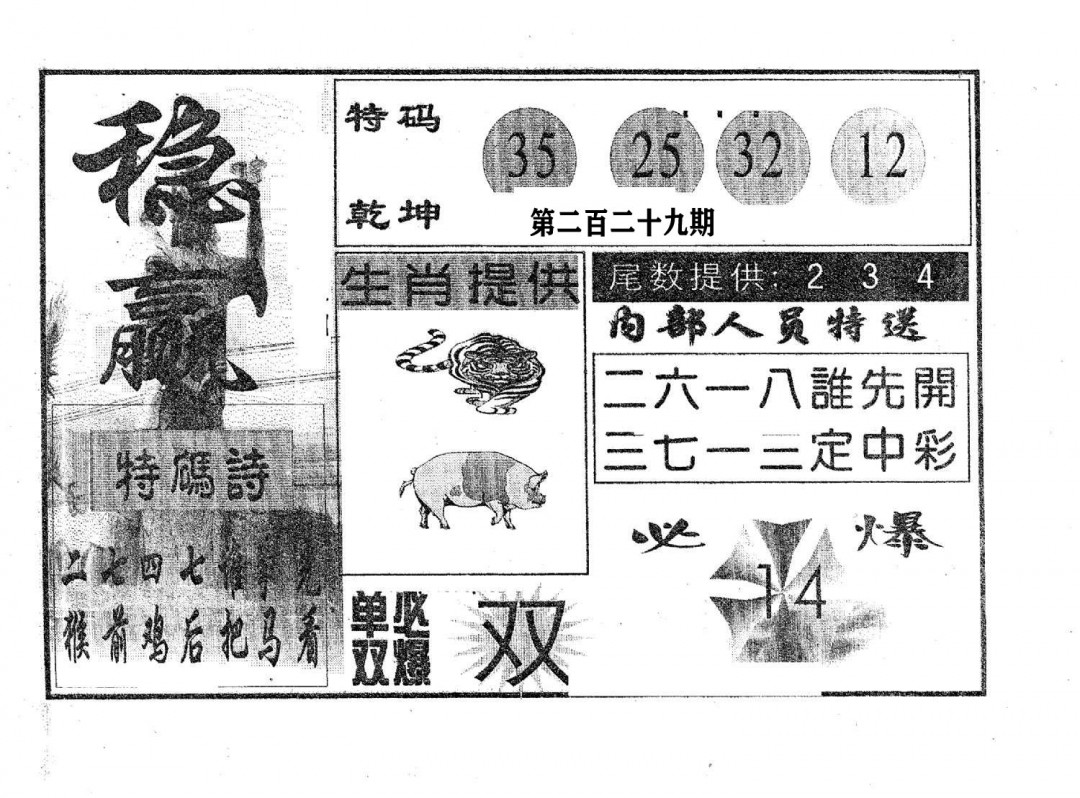 稳赢
特码
35 25 32 12
乾坤
第二百二十九期
生肖提供
尾数提供: 2 3 4
内部人员特送
二六一八誰先開
三七一三定中彩
特碼詩
二七四七
猴前鸡后把马看
必爆
14
单双
必爆
双